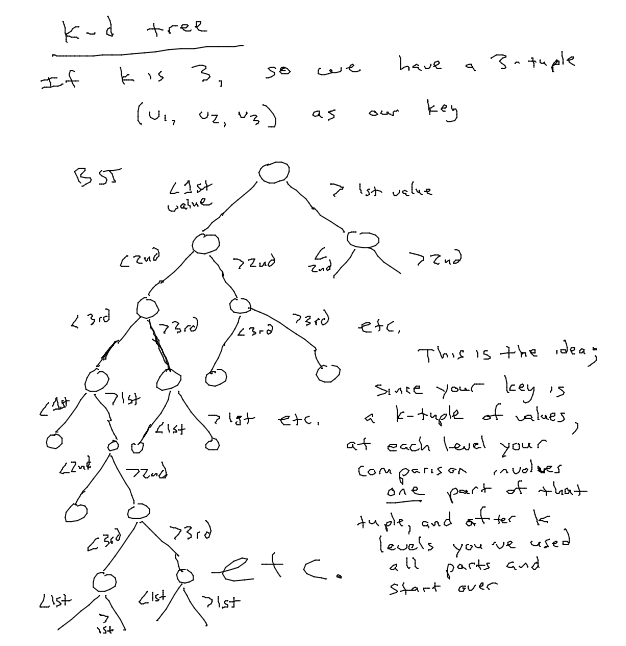 k-d tree
If k is 3, so we have a 3-tuple
(v1, v2, v3) as our key
BST
<1st value
> 1st value
<2nd
>2nd
< 2nd
>2nd
< 3rd
>3rd
<3rd
>3rd
etc.
<1st
>1st
<1st
> 1st etc.
<2nd
>2nd
<3rd
>3rd
etc.
<1st
> 1st
<1st
>1st
This is the idea;
since your key is
a k-tuple of values,
at each level your
comparison involves
one part of that
tuple, and after k
levels you've used
all parts and
start over